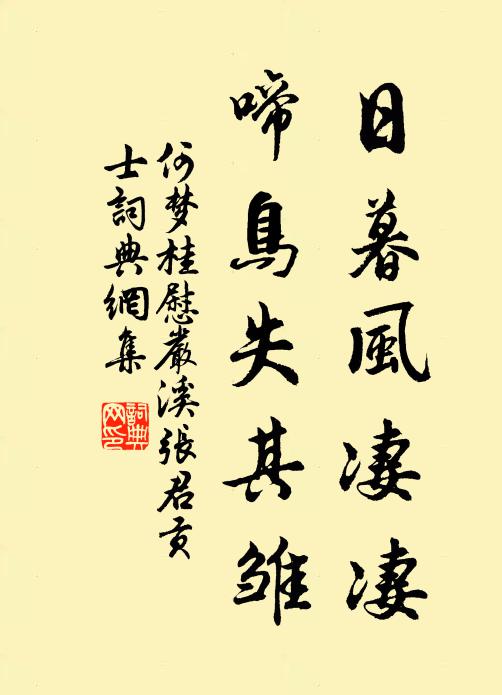 日暮風淒淒
啼鳥失其雏
何梦桂慰嚴溪張君貢
士詞典網集
詞典
网印